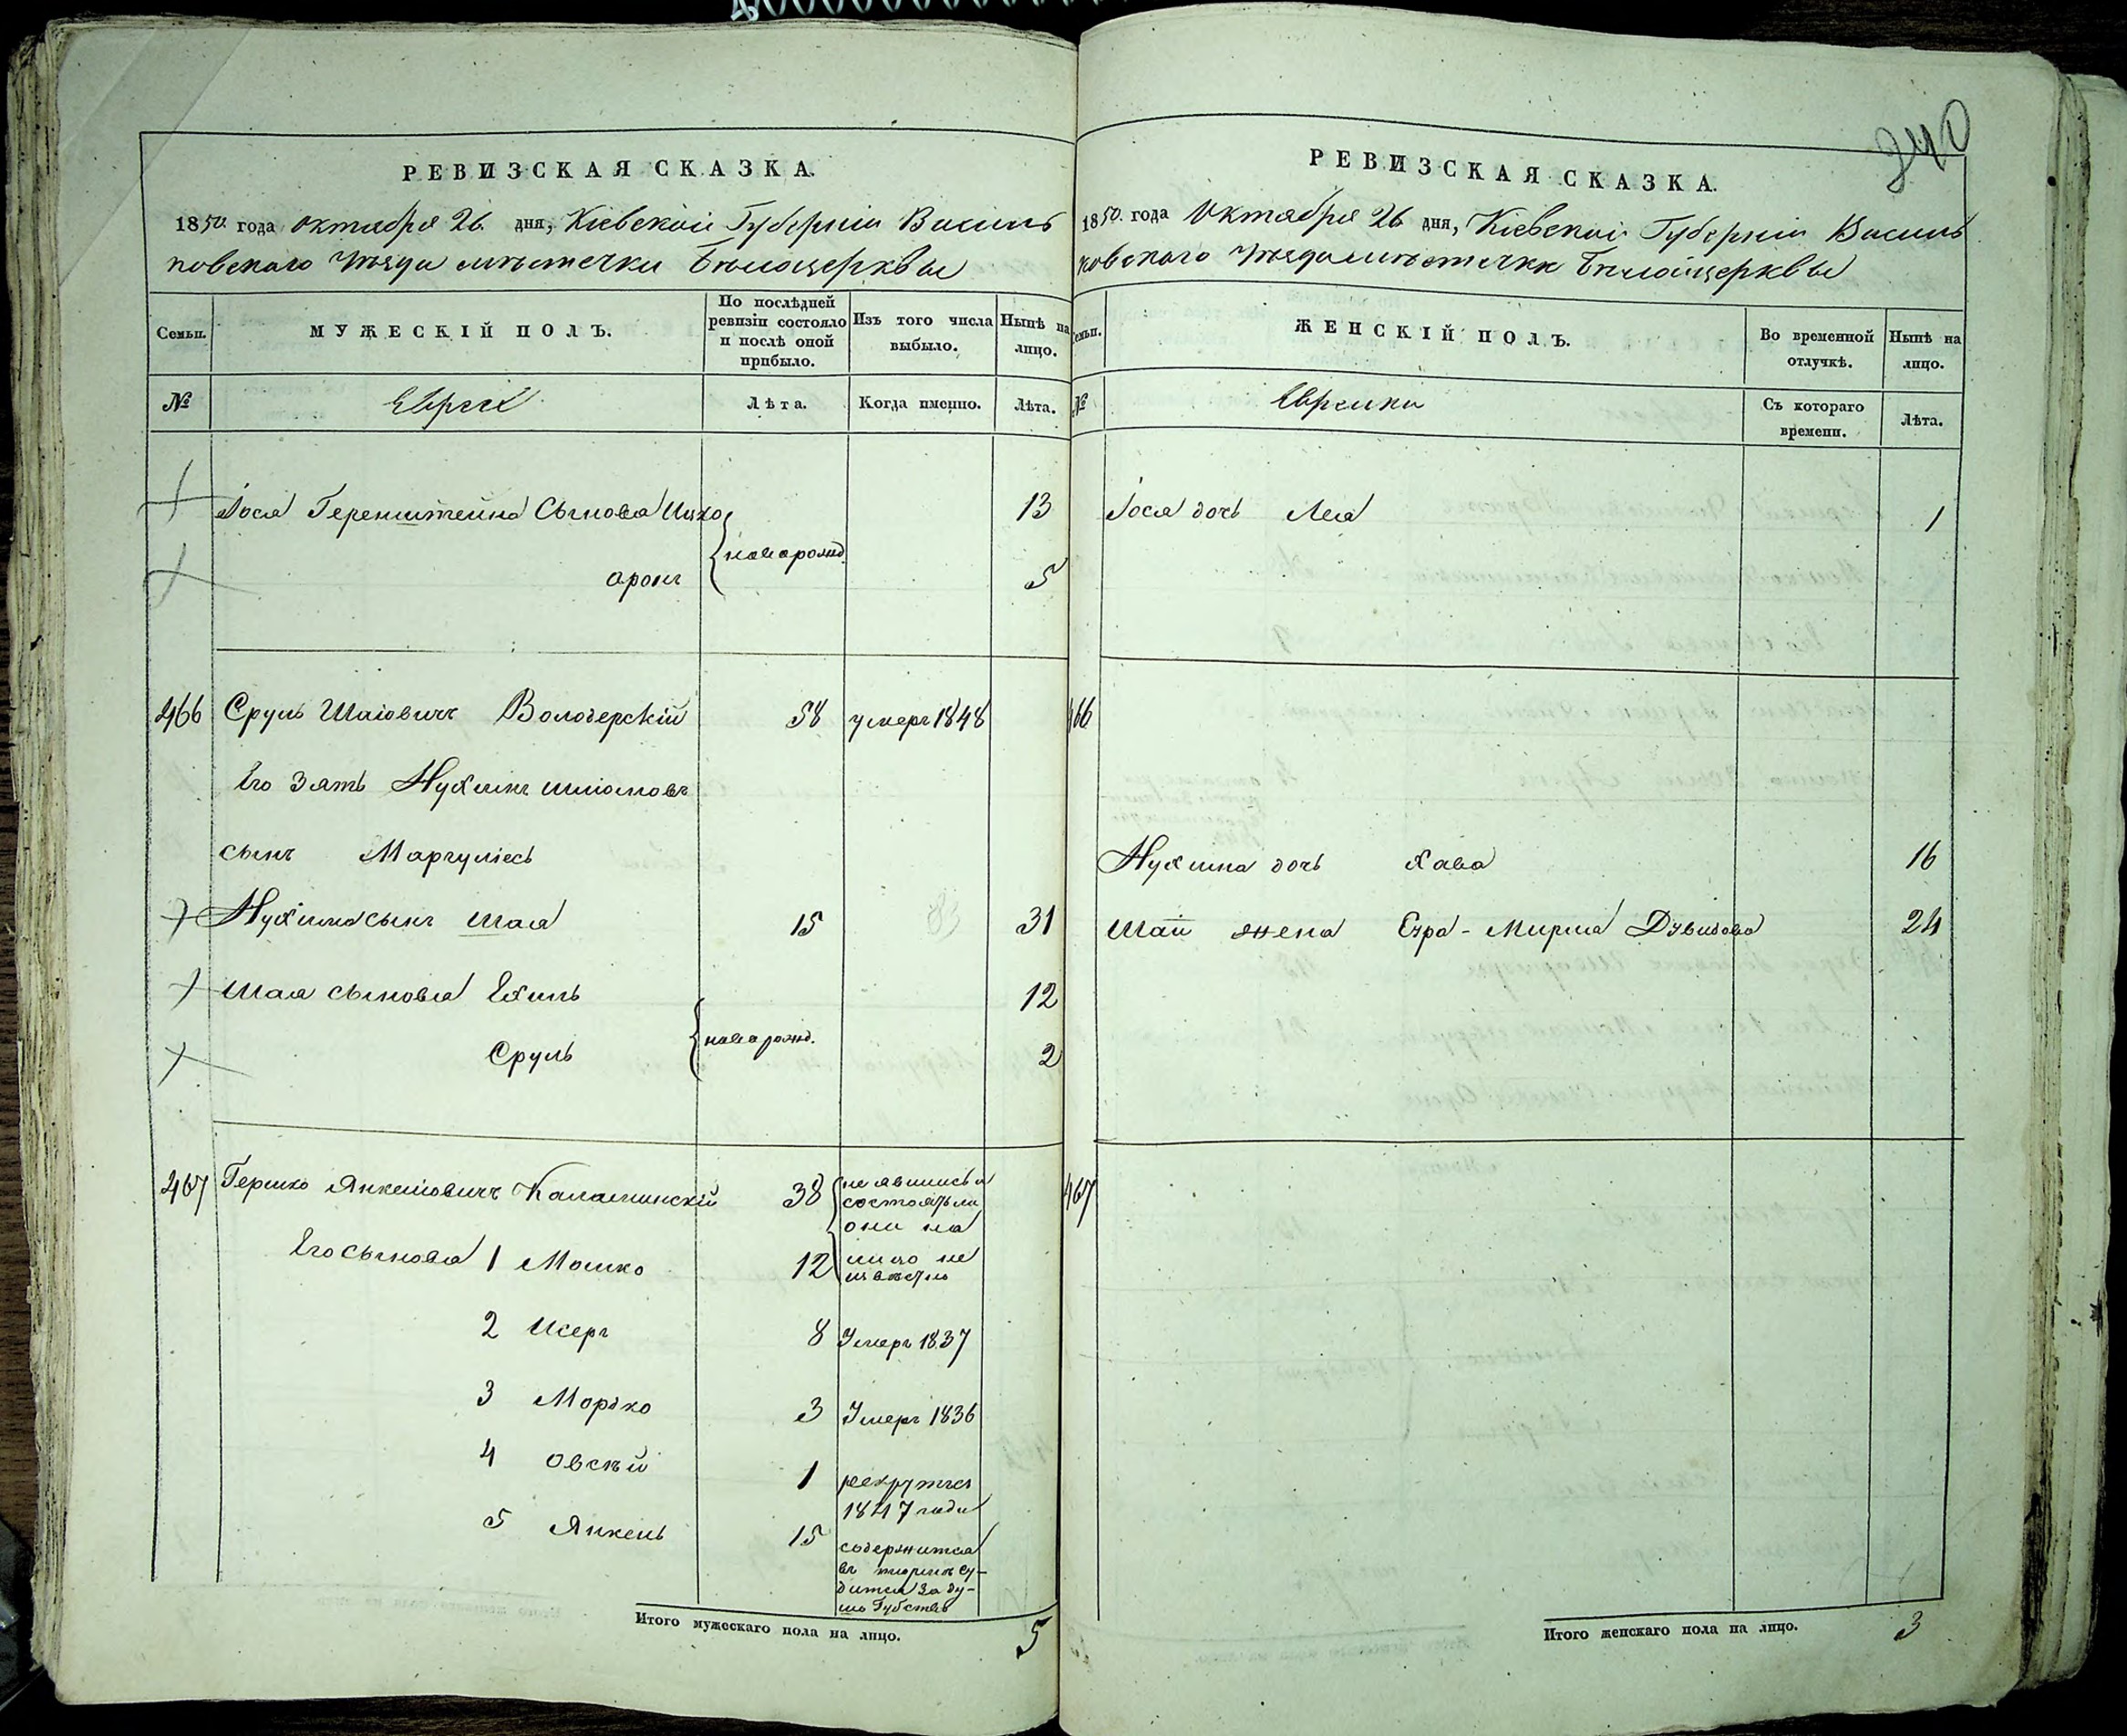 РЕВИЗСКАЯ СКАЗКА.
1850. года октября 26. дня, Кіевской Губерніи Василь
ковскаго уѣзда мѣстечка Бѣлоцерквы
Семьи.
МУЖЕСКІЙ ПОЛЪ.
По послѣдней ревизіи состояло и послѣ оной прибыло.
Изъ того числа выбыло.
Нынѣ на лицо.
№
Евреи
Лѣта.
Когда именно.
Лѣта.
Іося Геренштейна Сынова Ицко
13
новорожд.
аронъ
5
466 Сруль Шаіовичъ Володерскій 58 умеръ 1848
Его Зять Нухимъ
сынъ Маргуліесъ
Нухима сынъ Шая 15 31
Шая сыновья Ехиль 12
новорожд.
Сруль 2
467 Гершко Янкеліовичъ Каламинскій 38
не явились и
состоятъ ли
они на
лицо не
извѣстно
Его сыновья 1 Мошко 12
2 Исеръ 8 Умеръ 1837
3 Мордко 3 Умеръ 1836
4 Овсѣй 1 рекрутъ
1847 года
5 Янкель 15 содержится
въ тюрьмѣ су-
дится за ду-
шегубство
Итого мужескаго пола на лицо. 5
240
РЕВИЗСКАЯ СКАЗКА.
1850. года Октября 26 дня, Кіевской Губерніи Василь
ковскаго уѣзда мѣстечка Бѣлоцерквы
Семьи.
ЖЕНСКІЙ ПОЛЪ.
Во временной отлучкѣ.
Нынѣ на лицо.
№
Еврейки
Съ котораго времени.
Лѣта.
Іося дочь Леа 1
466
Нухима дочь Хава 16
Шаи жена Сура-Мирма Дувидова 24
467
Итого женскаго пола на лицо. 3